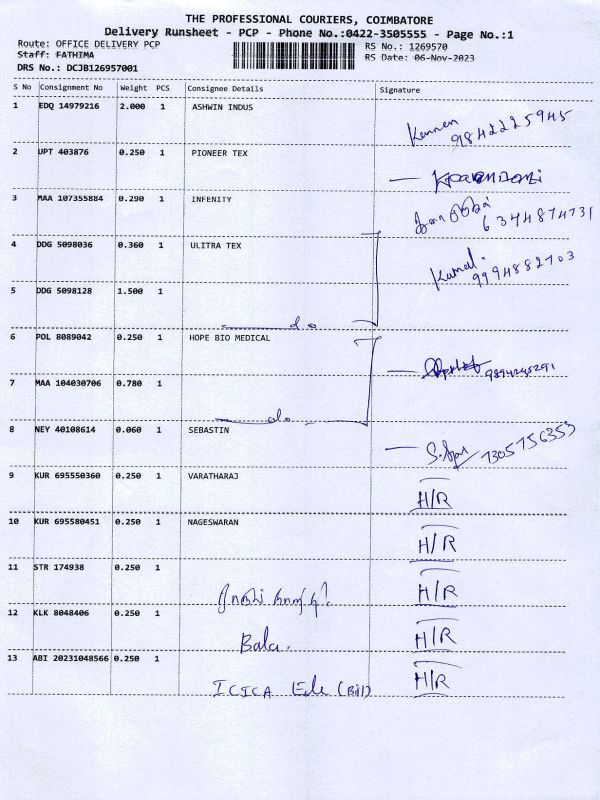 THE PROFESSIONAL COURIERS, COIMBATORE
Delivery Runsheet - PCP - Phone No.:0422-3505555 - Page No.:1
Route: OFFICE DELIVERY PCP
Staff: FATHIMA
DRS No.: DCJB126957001
RS No.: 1269570
RS Date: 06-Nov-2023
S No Consignment No Weight PCS Consignee Details Signature
1 EDQ 14979216 2.000 1 ASHWIN INDUS
Kannan
9842225945
2 UPT 403876 0.250 1 PIONEER TEX
3 MAA 107355884 0.290 1 INFENITY
6374874731
4 DDG 5098036 0.360 1 ULITRA TEX
Kamal.
9994882703
5 DDG 5098128 1.500 1
do
6 POL 8089042 0.250 1 HOPE BIO MEDICAL
9894245291
7 MAA 104030706 0.780 1
do.
8 NEY 40108614 0.060 1 SEBASTIN
7305756353
9 KUR 695550360 0.250 1 VARATHARAJ H/R
10 KUR 695580451 0.250 1 NAGESWARAN H/R
11 STR 174938 0.250 1 H/R
12 KLK 8048406 0.250 1 Bala. H/R
13 ABI 20231048566 0.250 1 ICICA (Bill) H/R